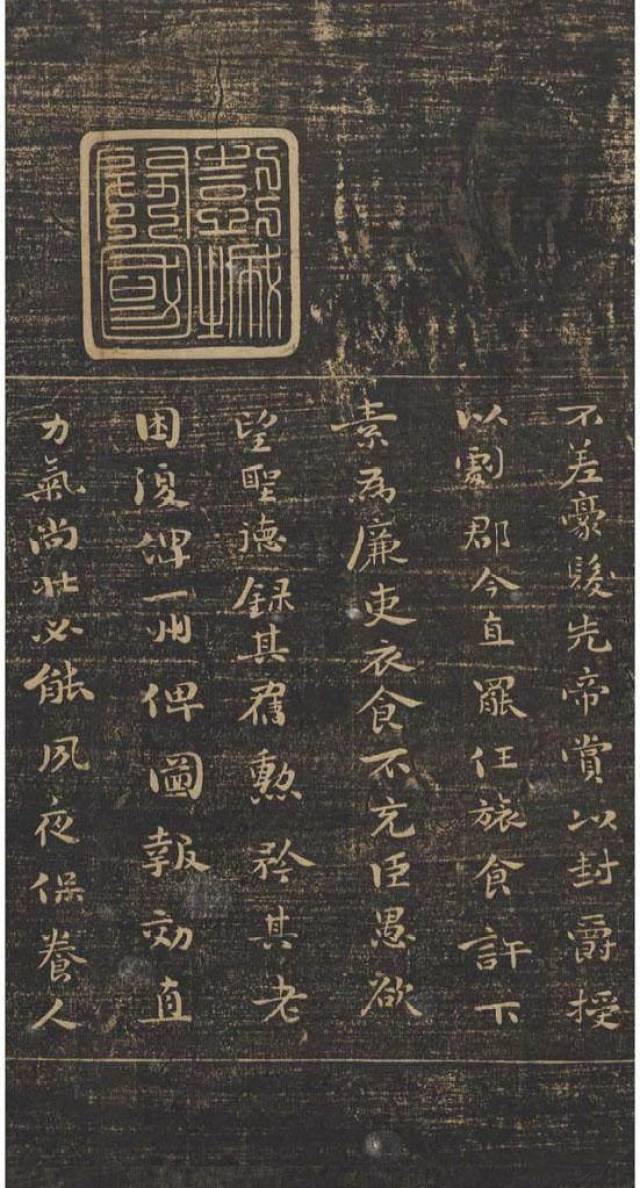 彭城
開國
不差豪髮先帝賞以封爵授
以劇郡今直罷任旅食許下
素為廉吏衣食不充臣愚欲
望聖德録其舊勲矜其老
困復俾一州俾圖報効直
力氣尚壮必能夙夜保養人